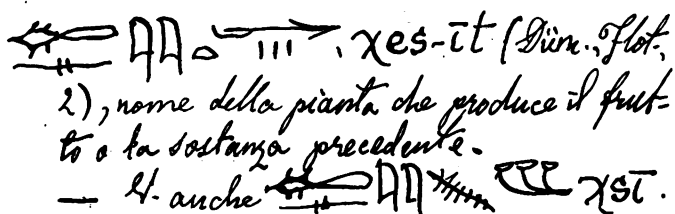 χes-īt (Düm., Flot.,
2), nome della pianta che produce il frut-
to o la sostanza precedente.
— V. anche χsī.